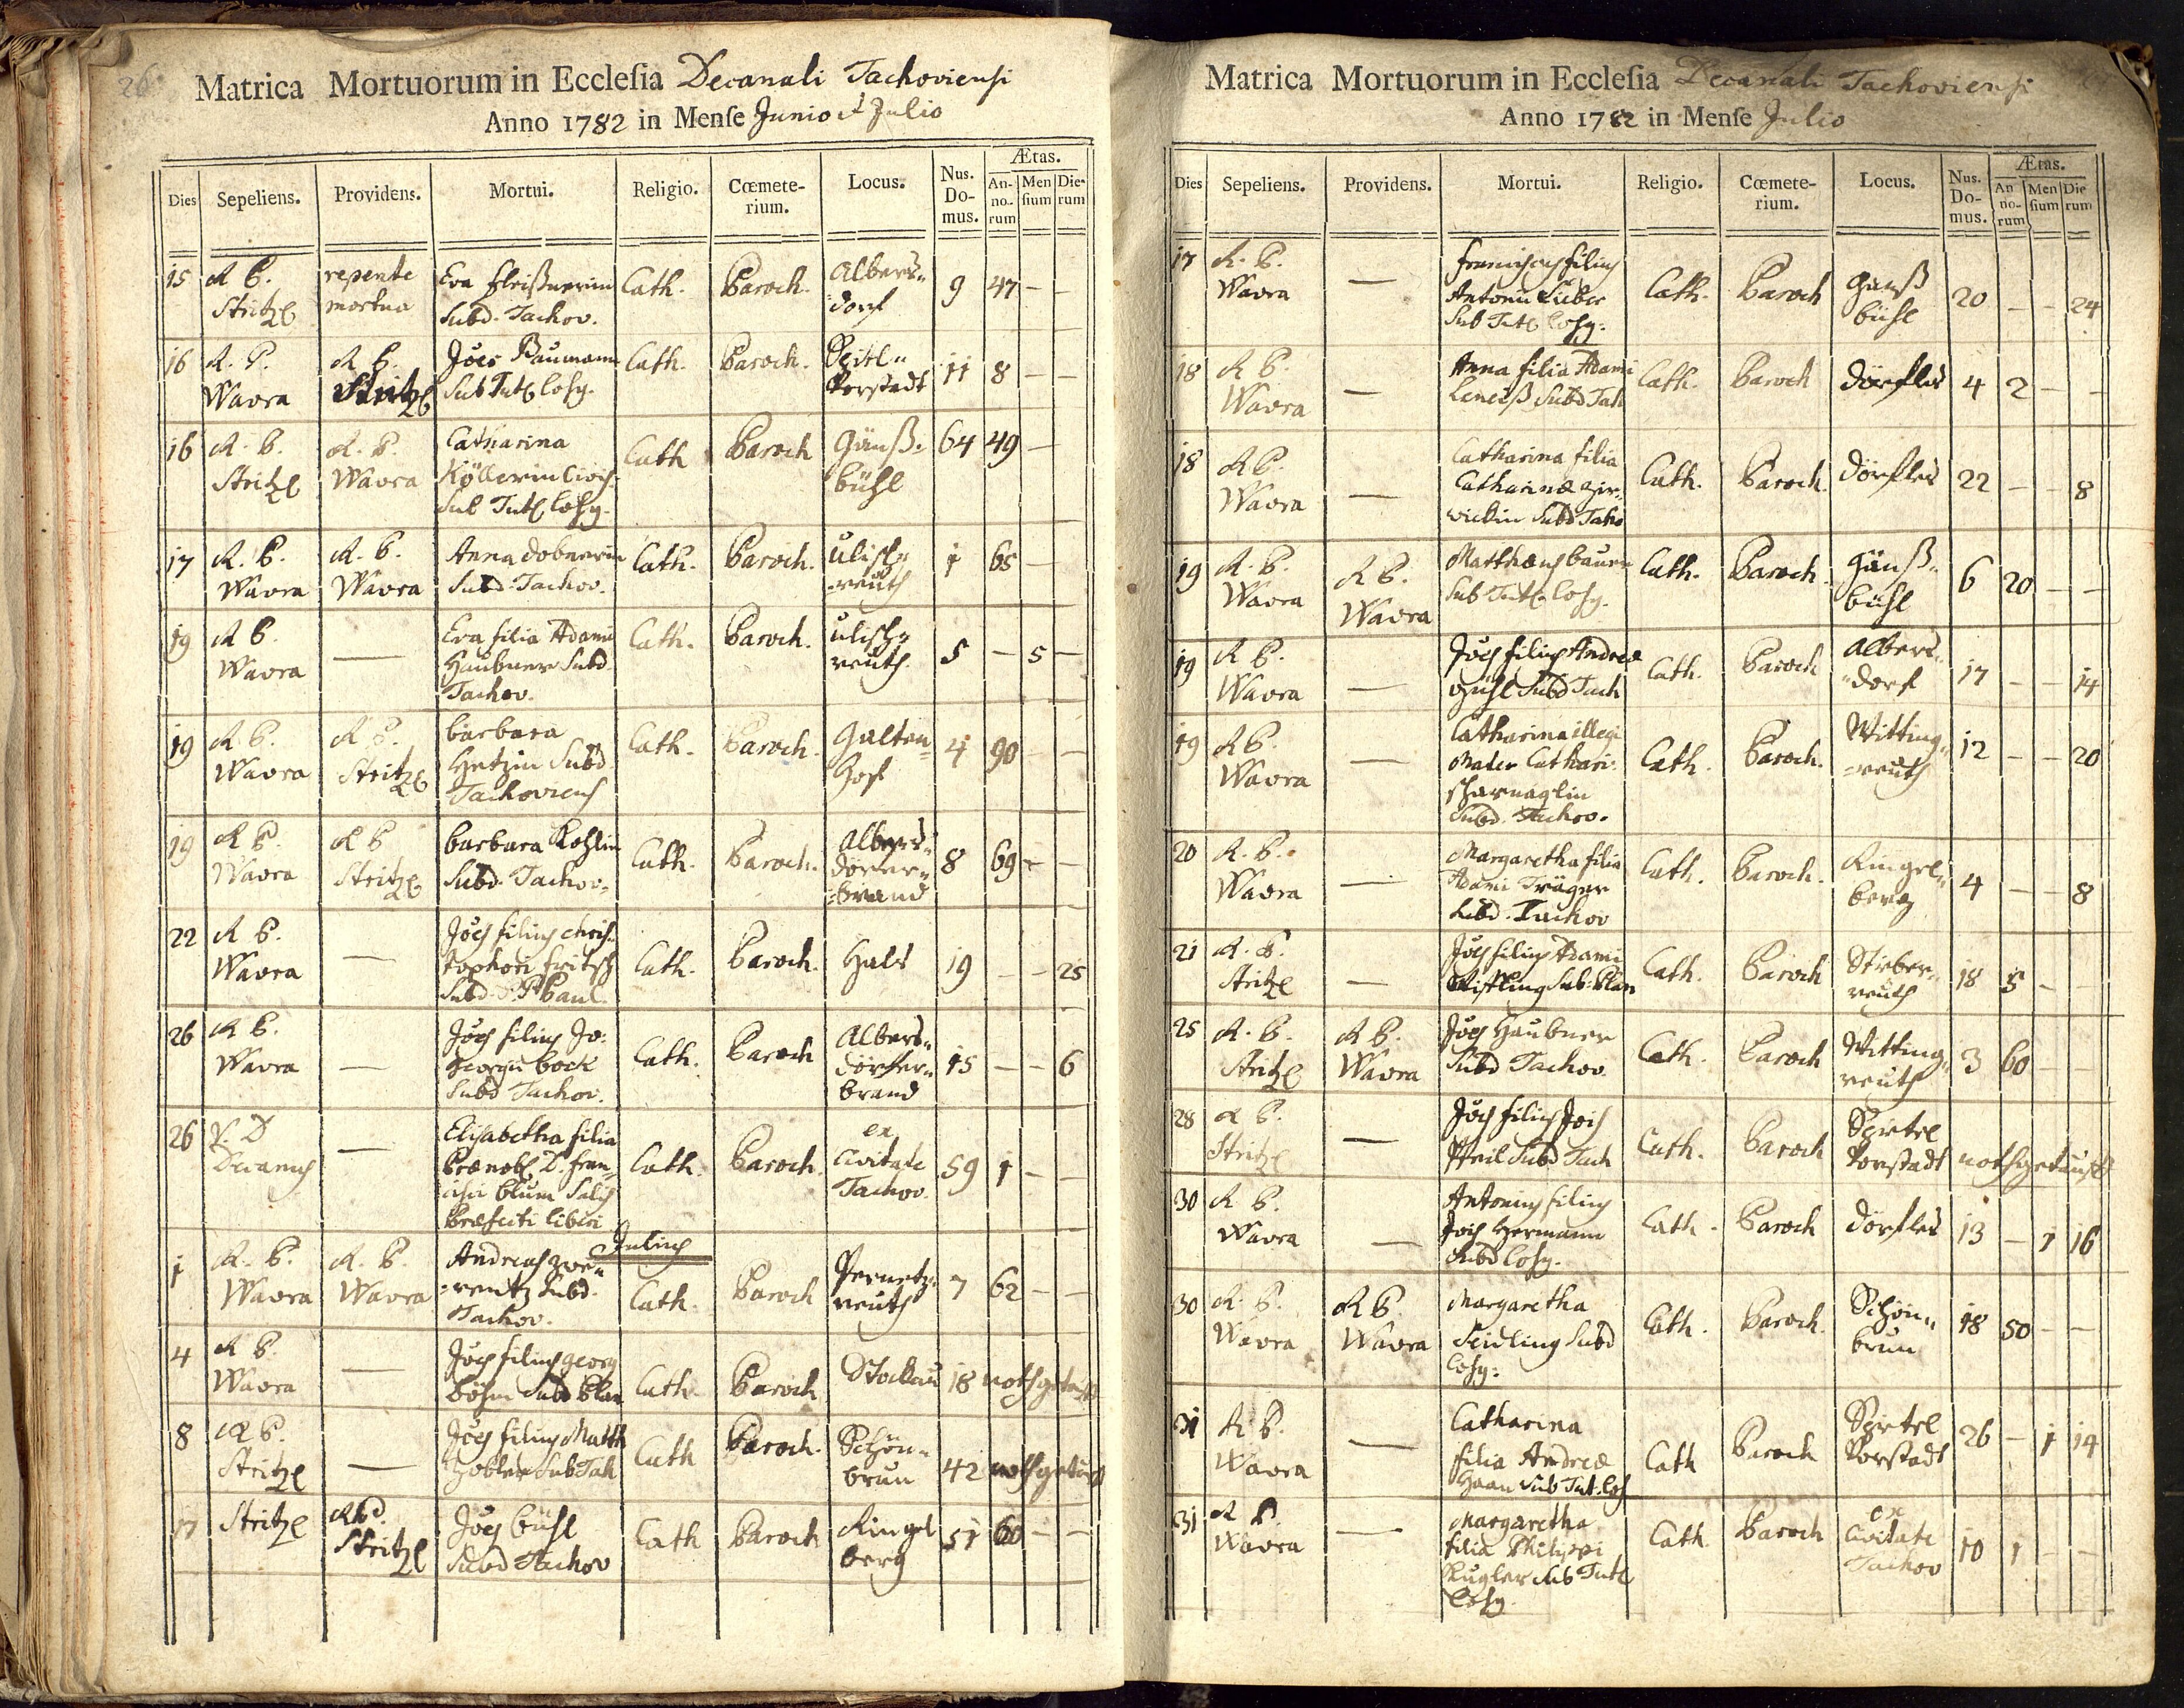 26
Matrica Mortuorum in Ecclesia Decanali Tachoviensi
Anno 1782 in Mense Junio et Julio
Dies Sepeliens. Providens. Mortui. Religio. Cœmete-rium. Locus. Nus. Do-mus. Ætas. An-no-rum Men sium Die-rum
15 R. P. Stritzl repente mortua Eva fleißnerin Subd. Tachov. Cath. Paroch. Albers-dorf 9 47 — —
16 R. P. Wavra R. P. Stritzl Jões Baumann Sub Tutl Cosy. Cath. Paroch. Spitl-Vorstadt 11 8 — —
16 R. P. Stritzl R. P. Wavra Catharina Köllerin Civis Sub Tutl Cosy. Cath Paroch Gänß-bühl 64 49 —
17 R. P. Wavra R. P. Wavra Anna dobnerin Subd. Tachov. Cath. Paroch. Ulisch-reuth 1 65 —
19 R P. Wavra — Eva filia Adami Haubner Subd Tachov. Cath. Paroch. Ulisch-reuth 5 — 5 —
19 R. P. Wavra R P. Stritzl barbara Hetzin Subd Tachoviens Cath. Paroch. Galten-hof 4 90 — —
19 R P. Wavra R P Stritzl barbara Kohlin Subd. Tachov. Cath. Paroch. Albers-dörfer-brand 8 69 — —
22 R P. Wavra — Jões filius chris-tophori fritsch Subd. Cath. Paroch. Hals 19 — — 25
26 R P. Wavra — Jões filius Jo. Georgii bock Subd Tachov. Cath. Paroch Albers-dörfer-brand 15 — — 6
26 Decanus — Elisabetha filia Prænobl. D. fran-cisci blum Salis Præfecti Cath. Paroch. ex Civitate Tachov. 59 1 — —
Julius
1 R. P. Wavra R. P. Wavra Andreas zwe-rentz Subd. Tachov. Cath. Paroch Pernetz-reuth 7 62 — —
4 R P. Wavra — Jões filius georg böhm Subd Plan Cath Paroch Stockau 18 nothgetauft
8 R P. Stritzl — Jões filius Matth Zobler Sub Tach Cath Paroch. Schön-brun 42 nothgetauft
17 Stritzl R P. Stritzl Jões bühl Subd Tachov Cath Paroch Ringel berg 51 60 — —
Matrica Mortuorum in Ecclesia Decanali Tachoviensi
Anno 1782 in Mense Julio
Dies Sepeliens. Providens. Mortui. Religio. Cœmete-rium. Locus. Nus. Do-mus. Ætas. An no-rum Men sium Die rum
17 R. P. Wavra — franciscus filius Antonii Lieber Sub Tutl Cosy. Cath. Paroch Gänß bühl 20 — — 24
18 R P. Wavra — Anna filia Adami Subd Tach Cath. Paroch dörfles 4 2 — —
18 R P. Wavra — Catharina filia Catharinæ Subd Tacho Cath. Paroch. dörfles 22 — — 8
19 R. P. Wavra R P. Wavra Matthæus baur Sub Tutl Cosy. Cath. Paroch. Gänß-bühl 6 20 — —
19 R P. Wavra — Jões filius Andreæ Subd Tach Cath. Paroch Albers-dorf 17 — — 14
19 R P. Wavra — Catharina illegi Mater Cathari. scharnaglin Subd. Tachov. Cath. Paroch. Witting-reuth 12 — — 20
20 R. P. Wavra — Margaretha filia Adami Träger Subd. Tachov Cath. Paroch. Ringel-berg 4 — — 8
21 R. P. Stritzl — Jões filius Adami Sub. Plan Cath. Paroch Stieber-reuth 18 5 — —
25 R. P. Stritzl R P. Wavra Jões Haubner Subd Tachov Cath. Paroch Witting-reuth 3 60 — —
28 R P. Stritzl — Jões filius Jois Pfeil Subd Tach Cath. Paroch Spitel Vorstadt nothgetauft
30 R P. Wavra — Antonius filius Jois Hermann Subd Cosy. Cath. Paroch dörfles 13 — 1 16
30 R. P. Wavra R P. Wavra Margaretha Seidling Subd Cosy. Cath. Paroch. Schön-brun 18 50 — —
31 R. P. Wavra — Catharina filia Andreæ Haan Sub Tut. Cos Cath Paroch Spitel Vorstadt 26 — 1 14
31 R P. Wavra — Margaretha filia Philippi Kugler Sub Tutl Cosy. Cath. Paroch ex Civitate Tachov 10 1 — —